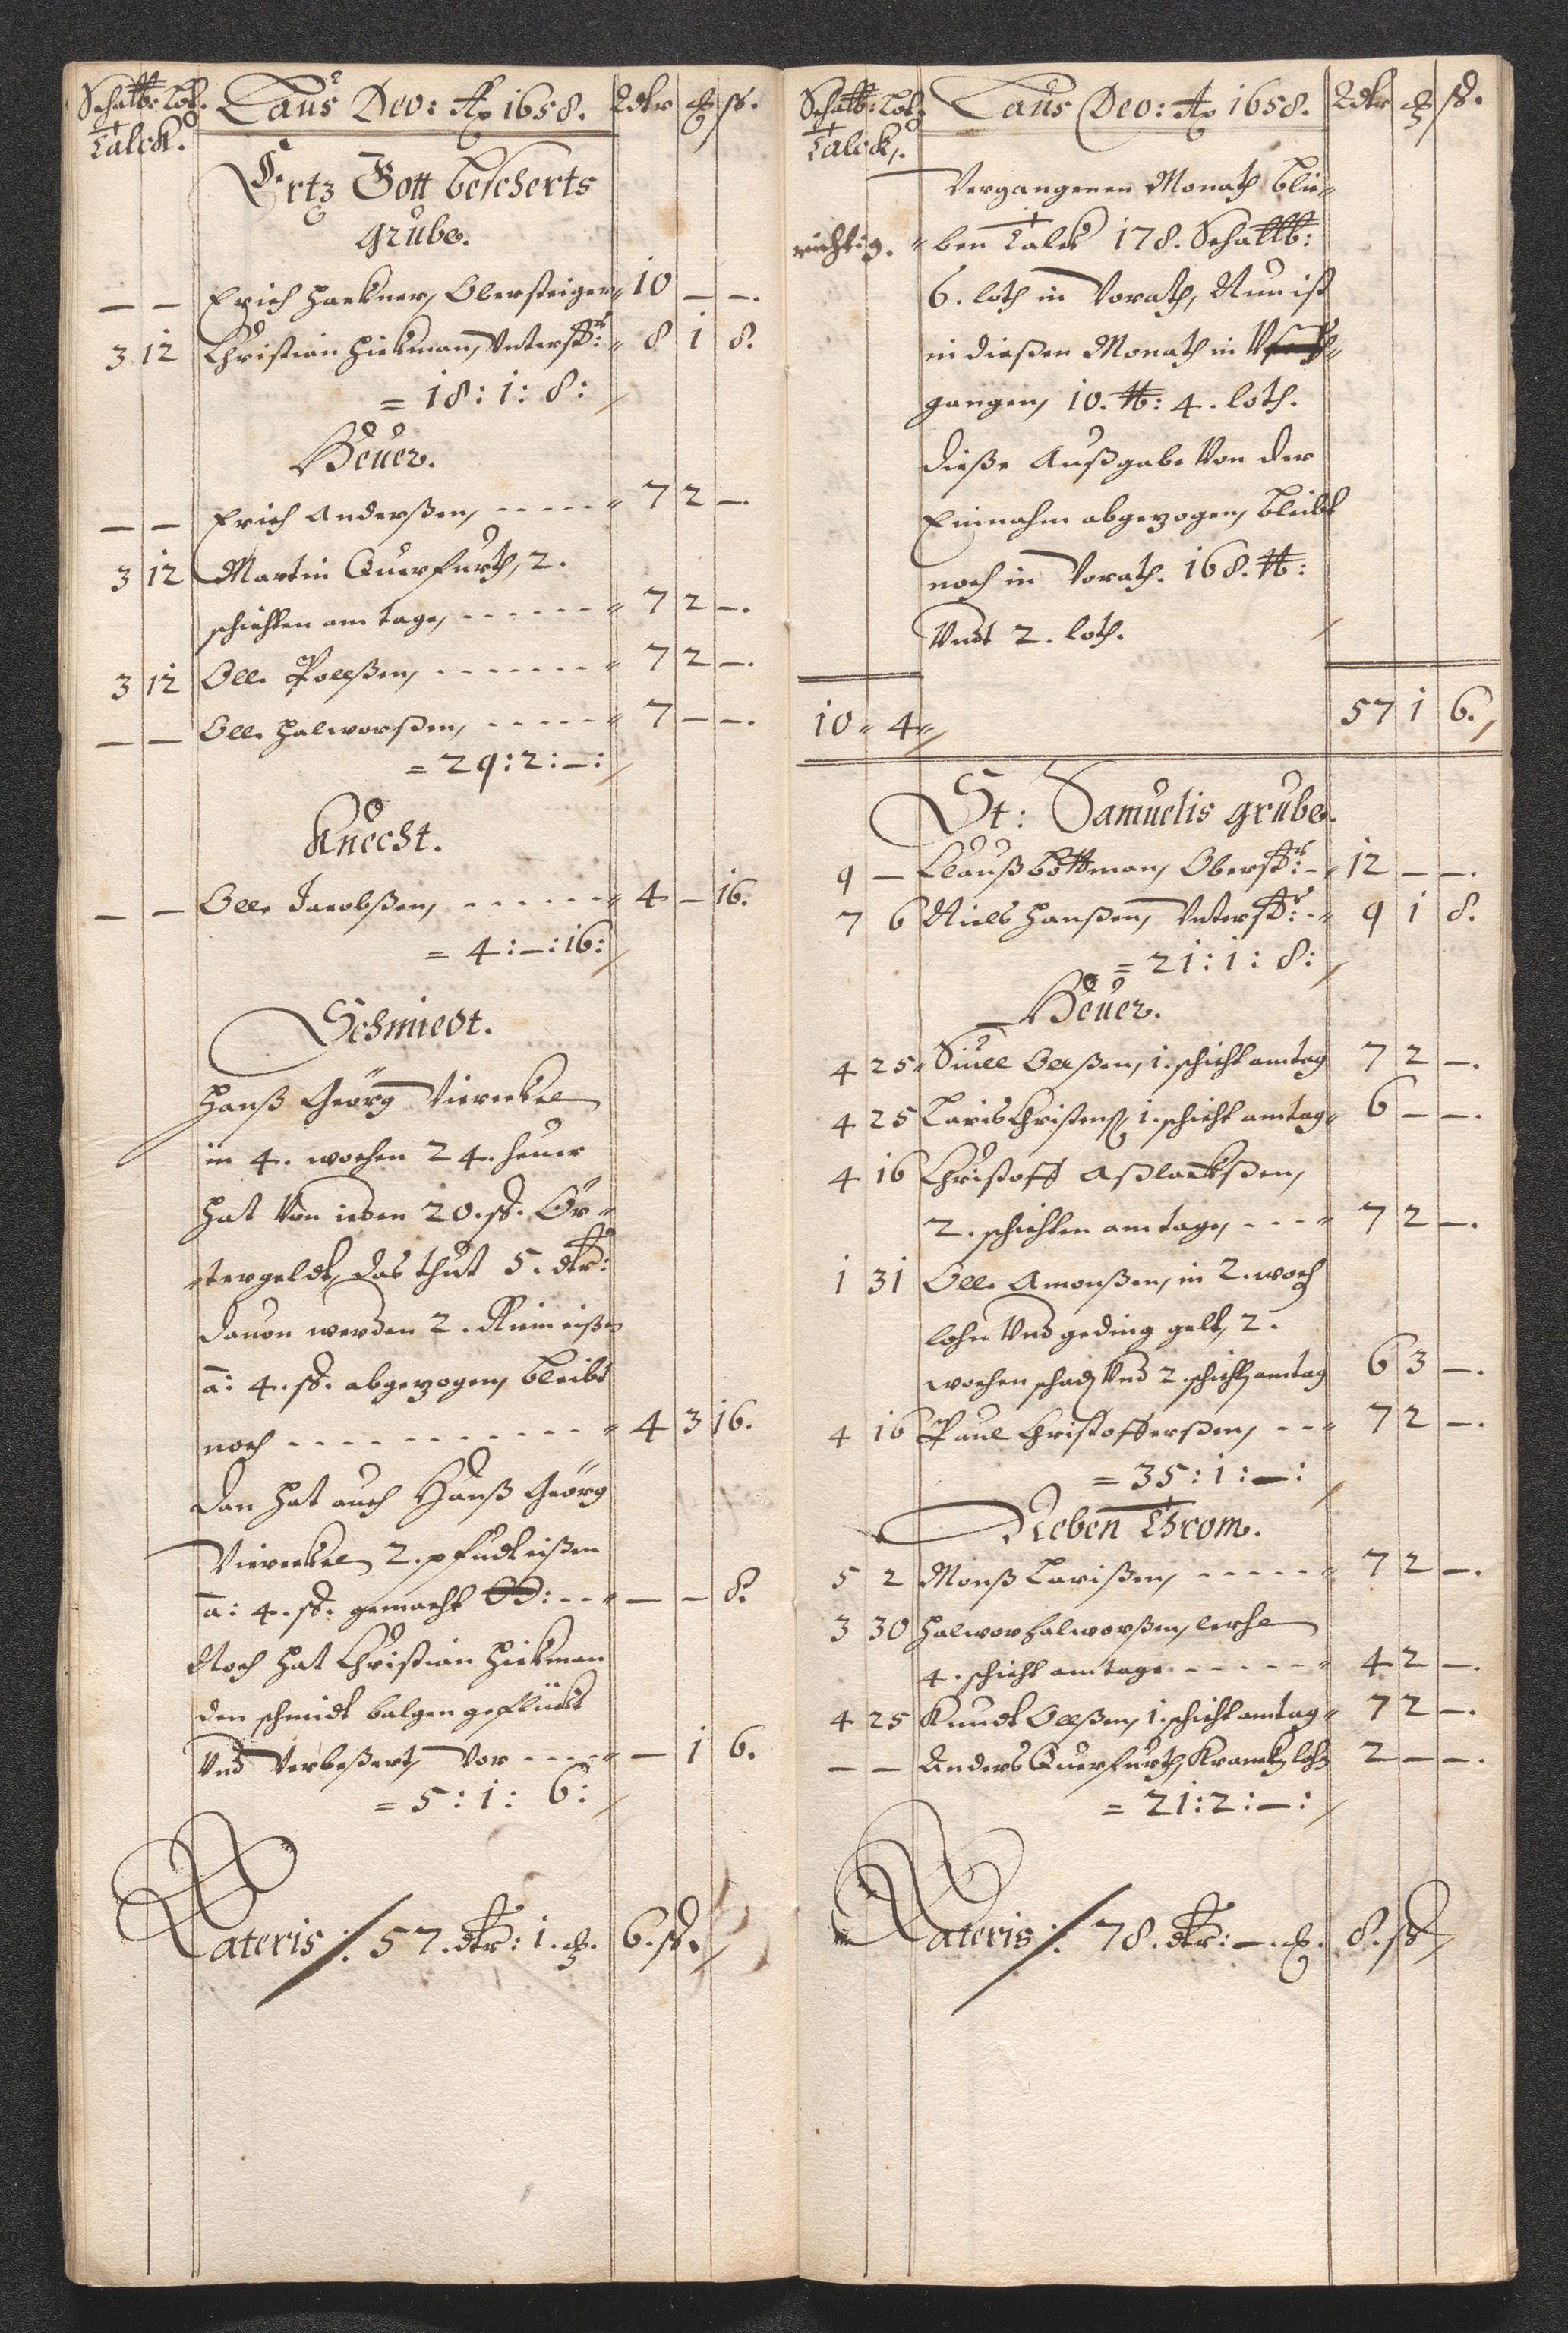 Schal℔: Lot. Laus Deo: Ao 1658. Rdtr ꝗ ß.
Talck.
Ertz Gott bescherts
grube.
— — Erich Hackner, Obersteiger " 10 — —.
3 12 Christian Hickman, Untersts: " 8 1 8.
= 18: 1: 8:
Heuer.
— — Erich Anderßen, ----- " 7 2 —.
3 12 Martin Querfurth, 2.
schichten am tage, ------ " 7 2 —.
3 12 Olle Pollßen, ------- " 7 2 —.
— — Olle Halworßen, ----- " 7 — —.
= 29: 2: —:
Knecht.
— — Olle Jacobßen, ------ " 4 — 16.
= 4: —: 16:
Schmiedt.
Hanß Geörg Viereckel
in 4. wochen 24. heuer
hat von ieden 20. ß. Ör-
tergeldt, das thut 5. dtr:
davon werden 2. Kein eißen
ā: 4. ß. abgezogen, bleibt
noch ------------ " 4 3 16.
Dan hat auch Hanß Geörg
Viereckel 2. pfudteißen
ā: 4. ß. gemacht --- " — — 8.
Noch hat Christian Hickman
den schmidt balgen geflückt
Und Verbeßert, Vor ---- " — 1 6.
= 5: 1: 6:
Lateris ⁒ 57. dtr: 1. ꝗ. 6. ß.
Schal℔: Lot. Laus Deo: Ao 1658. Rdtr ꝗ ß.
Talck.
Vergangenen Monath blie-
richtig. " ben Talck 178. Schal℔:
6. loth in Vorath, Nun ist
in dießen Monath in
gangen, 10. ℔: 4. loth.
dieße Außgabe Von der
Einnahm abgezogen, bleibt
noch in Vorath. 168. ℔:
Undt 2. loth.
10 " 4 " 57 1 6.
St: Samuelis grube.
9 — Clauß Bottman, Obersts: - " 12 — —.
7 6 Niels Hanßen, Untersts: - " 9 1 8.
= 21: 1: 8:
Heuer.
4 25 " Siuell Olßen, 1. schicht am tag 7 2 —.
4 25 Laris Christenß, 1. schicht am tag " 6 — —.
4 16 Christoff Aßlackßen,
2. schichten am tage, --- " 7 2 —.
1 31 Olle Amonßen, in 2. woch
lohn Und geding gelt, 2.
wochen schad Und 2. schicht am tag 6 3 —.
4 16 Paul Christofferßen, -- " 7 2 —.
= 35: 1: —:
Neben Throm.
5 2 Monß Larißen, ----- " 7 2 —.
3 30 Halwor Halworßen, lerhe
4. schicht am tage ------ " 4 2 —.
4 25 Knudt Olßen, 1. schicht am tag " 7 2 —.
— — Anders Querfurth, Kranck lohn 2 — —.
= 21: 2: —:
Lateris ⁒ 78. dtr: —. ꝗ. 8. ß